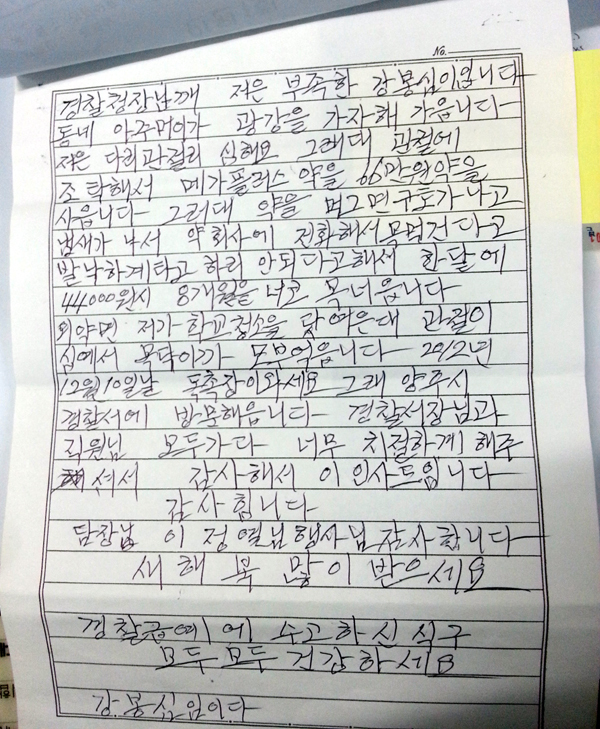 No.
경찰청장님깨 저은 부족한 강봉심이입니다
동네 아주머이가 광강을 가자해 가읍니다
저은 다리관절리 심해요 그래대 관절에
조탁해서 메가플러스 약을 66만원약을
사읍니다 그러대 약을 먹그면 구토가나고
냄새가 나서 약회사에 전화해서 못먹건다고
발낙하게타고 하리 안되다고해서 한달에
44000원시 8개월은 너코 못너읍니다
외야면 저가 학교청소을 닷여은대 관절이
심에서 목닥이가 모부억읍니다 2012년
12월10일날 독촉장이와세요 그래 양주시
경찰서에 방문해읍니다 경찰서장님과
직원님 모두가다 너무 치절하게 해주
셔서 감사해서 이 인사드입니다
감사힙니다
담장님 이정열님행사님 감사합니다
새해 복 많이 받으세요
경찰급여에 수고하신 식구
모두 모두 건강하세요
강봉심임이다